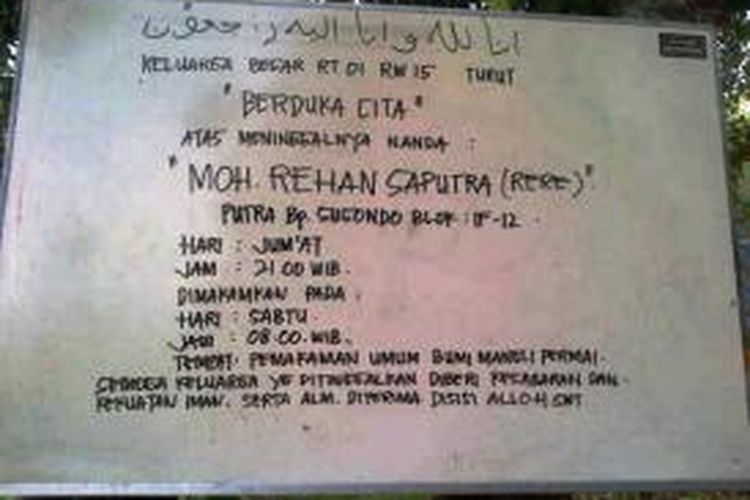 انا لله و انا اليه رجعون
KELUARGA BESAR RT. 01 RW 15 TURUT
"BERDUKA CITA"
ATAS MENINGGALNYA NANDA :
"MOH. REHAN SAPUTRA (RERE)"
PUTRA Bp. SUGONDO BLOK : IF-12
HARI : JUM'AT
JAM : 21.00 WIB.
DIMAKAMKAN PADA.
HARI : SABTU.
JAM : 08.00. WIB.
TEMPAT. PEMAKAMAN UMUM BUMI MANGLI PERMAI.
SEMOGA KELUARGA YG DITINGGALKAN DIBERI KESABARAN DAN
KEKUATAN IMAN. SERTA ALM. DITERIMA DISISI ALLOH SWT